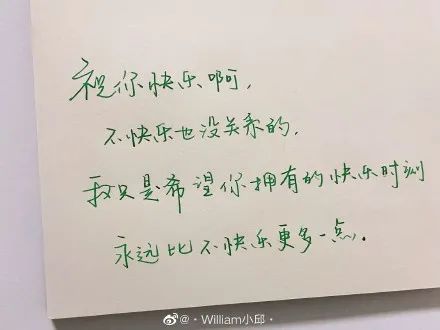 祝你快乐啊，
不快乐也没关系的，
我只是希望你拥有的快乐时刻
永远比不快乐更多一点．
@·William小邱·